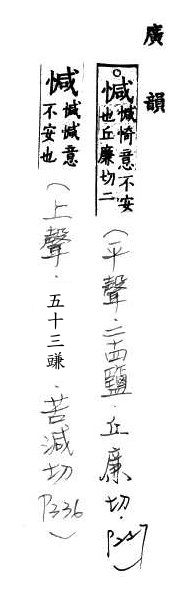 廣韻
意不安
也丘廉切二
(平聲·二十四鹽·丘廉切·P.227)
意
不安也
(上聲·五十三豏·苦減切P.336)